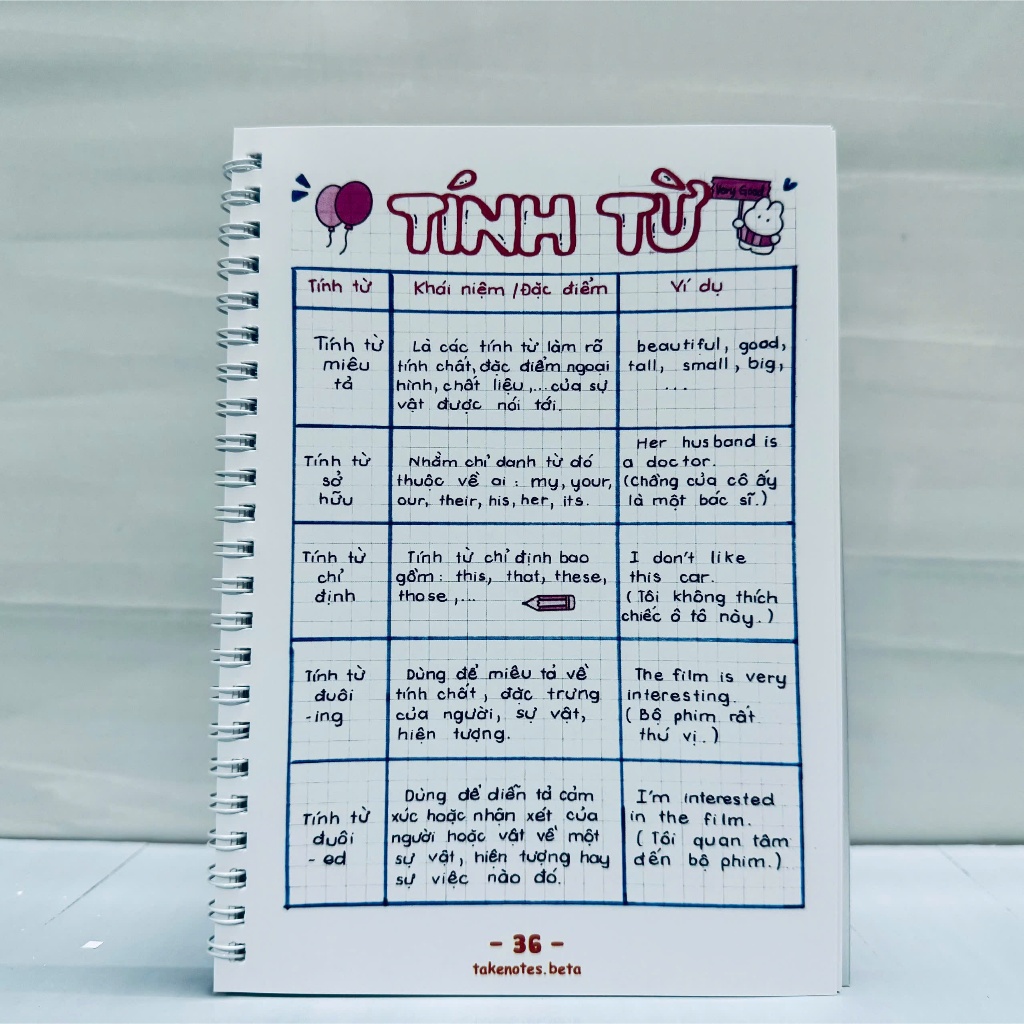 TÍNH TỪ
Very Good
Tính từ
Khái niệm /Đặc điểm
Ví dụ
Tính từ
miêu
tả
Là các tính từ làm rõ
tính chất, đặc điểm ngoại
hình, chất liệu,... của sự
vật được nói tới.
beautiful, good,
tall, small, big,
...
Tính từ
sở
hữu
Nhằm chỉ danh từ đó
thuộc về ai : my, your,
our, their, his, her, its.
Her husband is
a doctor.
(Chồng của cô ấy
là một bác sĩ.)
Tính từ
chỉ
định
Tính từ chỉ định bao
gồm : this, that, these,
those ,...
I don't like
this car.
( Tôi không thích
chiếc ô tô này. )
Tính từ
đuôi
-ing
Dùng để miêu tả về
tính chất, đặc trưng
của người, sự vật,
hiện tượng.
The film is very
interesting.
( Bộ phim rất
thú vị. )
Tính từ
đuôi
- ed
Dùng để diễn tả cảm
xúc hoặc nhận xét của
người hoặc vật về một
sự vật, hiện tượng hay
sự việc nào đó.
I'm interested
in the film.
( Tôi quan tâm
đến bộ phim.)
- 36 -
takenotes.beta